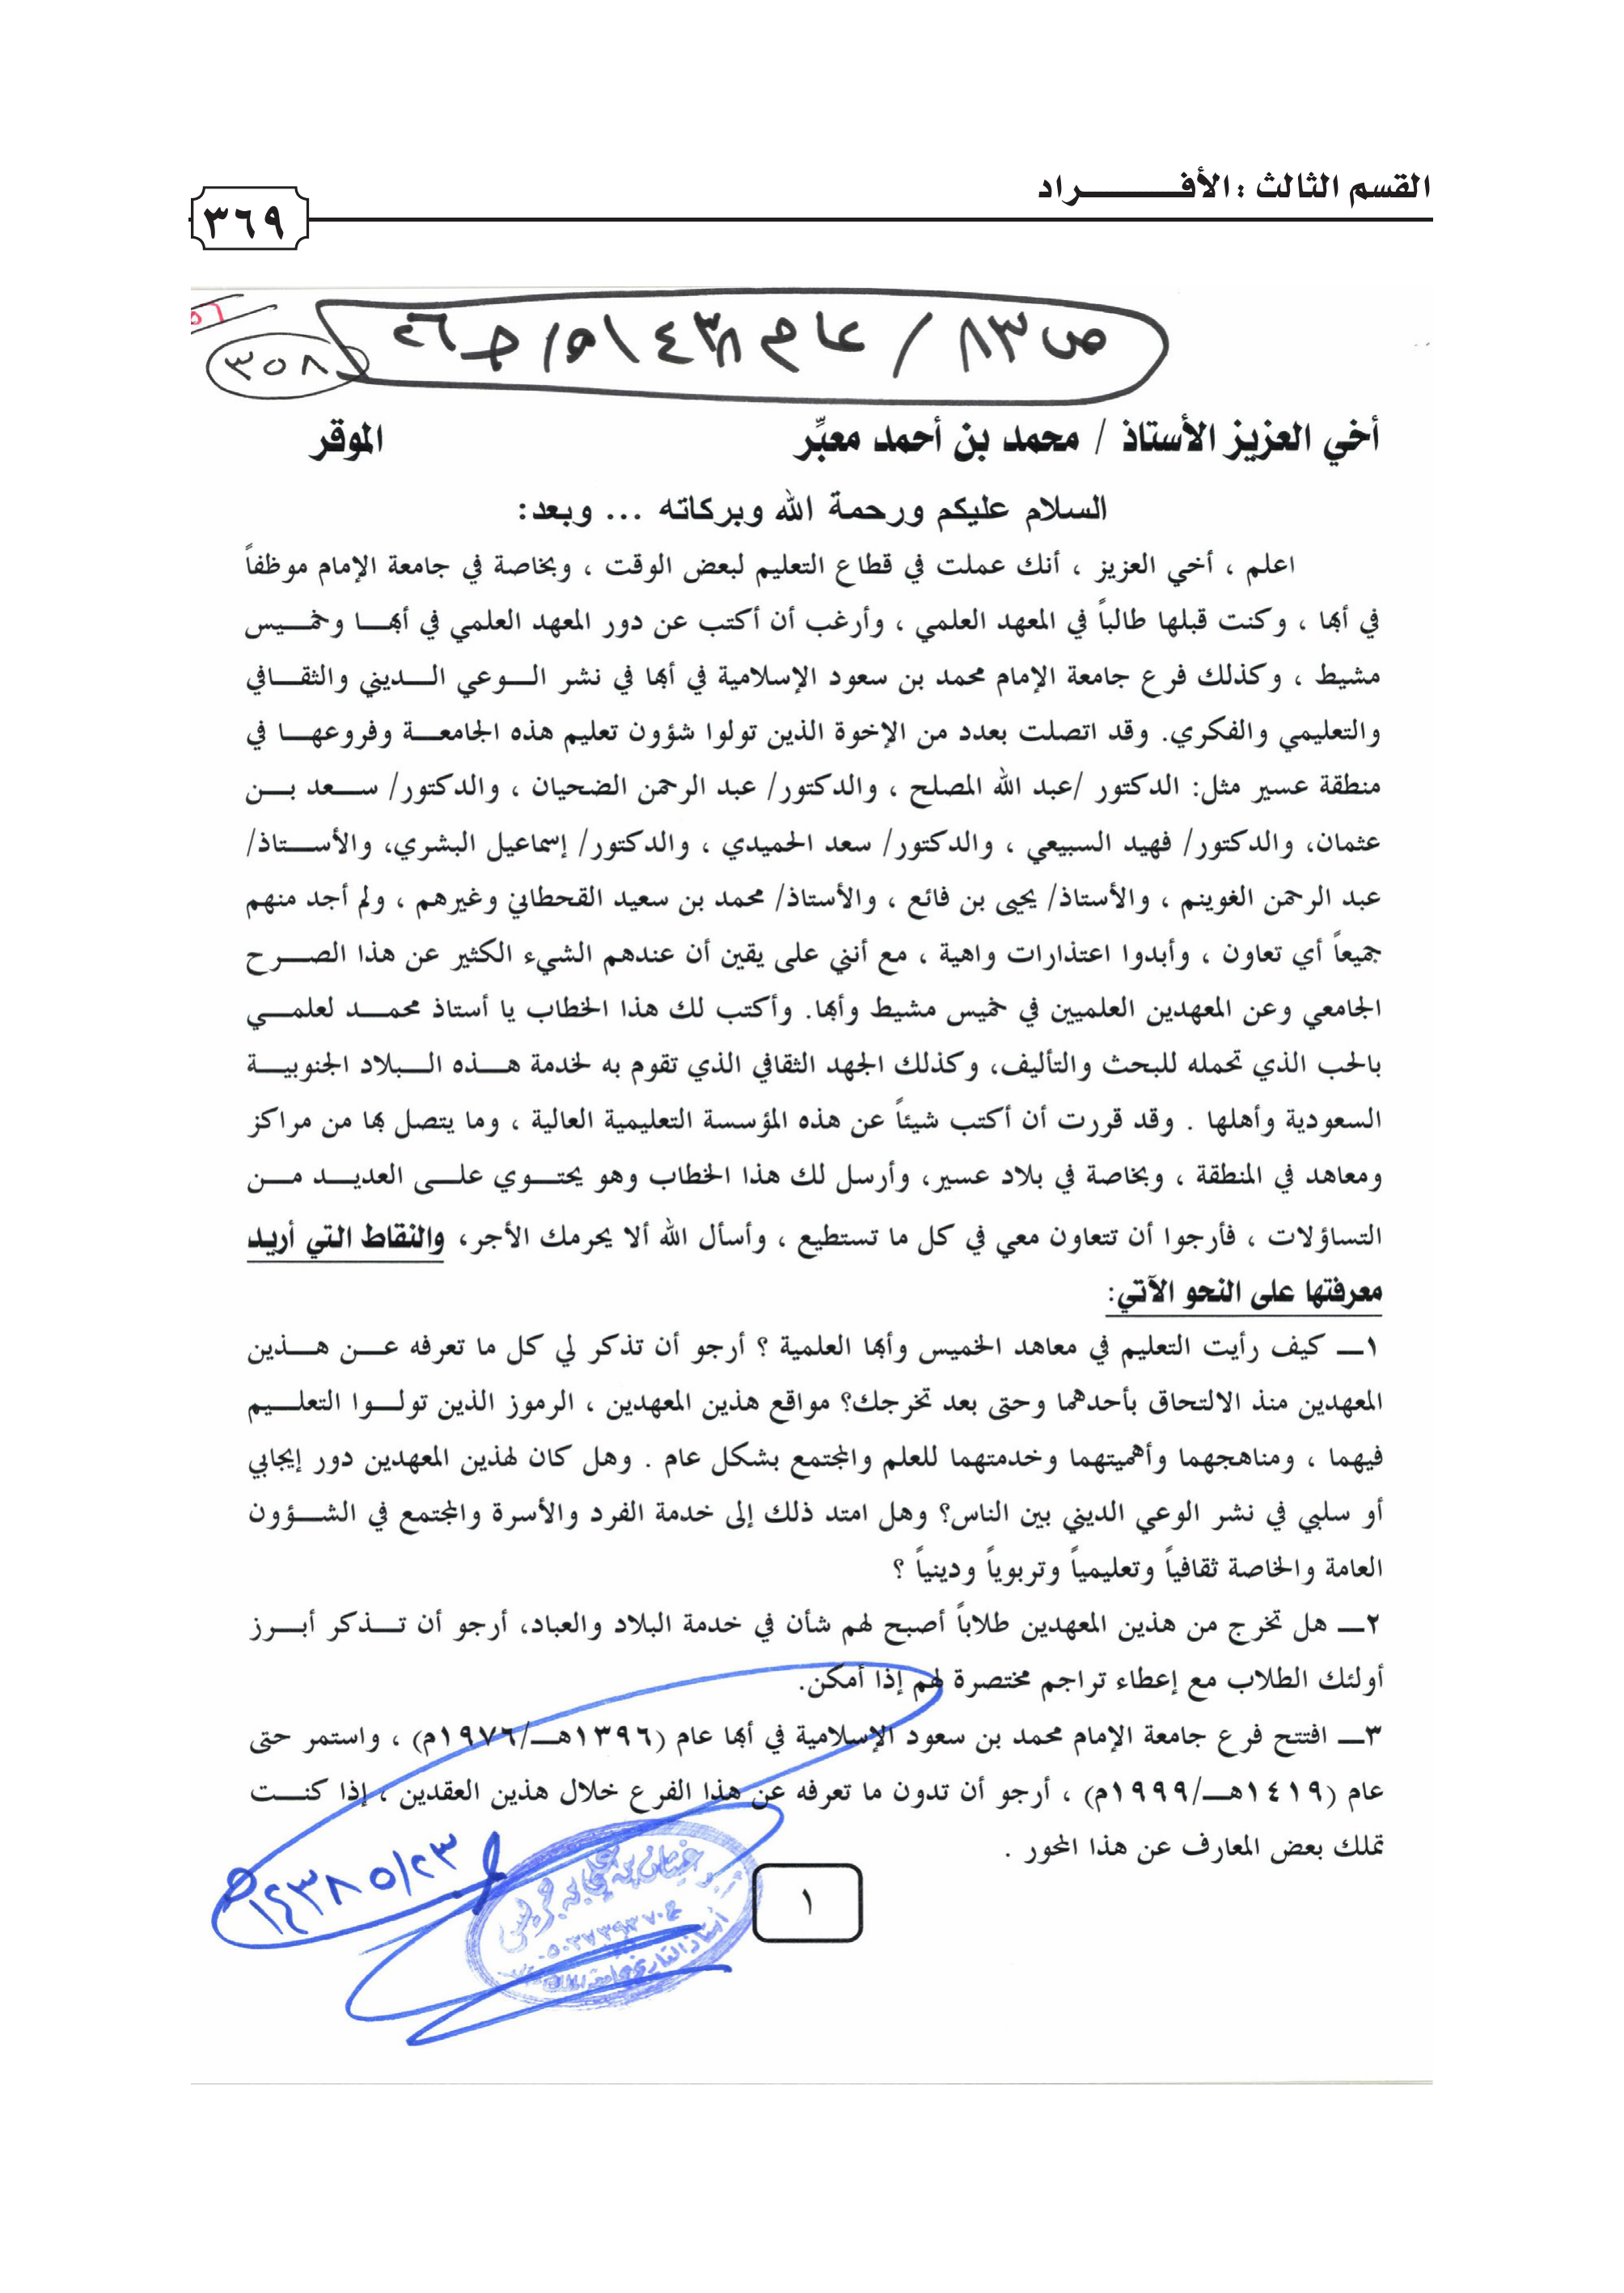 القسم الثالث : الأفـــــــــراد
٣٦٩
ص ٨٣ / عام ١٤٣٨هـ / ج ٢٦
٣٥٨
أخي العزيز الأستاذ / محمد بن أحمد معبِّر الموقر
السلام عليكم ورحمة الله وبركاته ... وبعد:
اعلم ، أخي العزيز ، أنك عملت في قطاع التعليم لبعض الوقت ، وبخاصة في جامعة الإمام موظفاً
في أبها ، وكنت قبلها طالباً في المعهد العلمي ، وأرغب أن أكتب عن دور المعهد العلمي في أبهـــا وخمـــيس
مشيط ، وكذلك فرع جامعة الإمام محمد بن سعود الإسلامية في أبها في نشر الـــوعي الـــديني والثقـــافي
والتعليمي والفكري. وقد اتصلت بعدد من الإخوة الذين تولوا شؤون تعليم هذه الجامعـــة وفروعهـــا في
منطقة عسير مثل: الدكتور /عبد الله المصلح ، والدكتور/ عبد الرحمن الضحيان ، والدكتور/ ســـعد بـــن
عثمان، والدكتور/ فهيد السبيعي ، والدكتور/ سعد الحميدي ، والدكتور/ إسماعيل البشري، والأســـتاذ/
عبد الرحمن الغوينم ، والأستاذ/ يحيى بن فائع ، والأستاذ/ محمد بن سعيد القحطاني وغيرهم ، ولم أجد منهم
جميعاً أي تعاون ، وأبدوا اعتذارات واهية ، مع أنني على يقين أن عندهم الشيء الكثير عن هذا الصـــرح
الجامعي وعن المعهدين العلميين في خميس مشيط وأبها. وأكتب لك هذا الخطاب يا أستاذ محمـــد لعلمـــي
بالحب الذي تحمله للبحث والتأليف، وكذلك الجهد الثقافي الذي تقوم به لخدمة هـــذه الـــبلاد الجنوبيـــة
السعودية وأهلها . وقد قررت أن أكتب شيئاً عن هذه المؤسسة التعليمية العالية ، وما يتصل بها من مراكز
ومعاهد في المنطقة ، وبخاصة في بلاد عسير، وأرسل لك هذا الخطاب وهو يحتـــوي علـــى العديـــد مـــن
التساؤلات ، فأرجوا أن تتعاون معي في كل ما تستطيع ، وأسأل الله ألا يحرمك الأجر، والنقاط التي أريد
معرفتها على النحو الآتي:
١ـــ كيف رأيت التعليم في معاهد الخميس وأبها العلمية ؟ أرجو أن تذكر لي كل ما تعرفه عـــن هـــذين
المعهدين منذ الالتحاق بأحدهما وحتى بعد تخرجك؟ مواقع هذين المعهدين ، الرموز الذين تولـــوا التعلـــيم
فيهما ، ومناهجهما وأهميتهما وخدمتهما للعلم والمجتمع بشكل عام . وهل كان لهذين المعهدين دور إيجابي
أو سلبي في نشر الوعي الديني بين الناس؟ وهل امتد ذلك إلى خدمة الفرد والأسرة والمجتمع في الشـــؤون
العامة والخاصة ثقافياً وتعليمياً وتربوياً ودينياً ؟
٢ـــ هل تخرج من هذين المعهدين طلاباً أصبح لهم شأن في خدمة البلاد والعباد، أرجو أن تـــذكر أبـــرز
أولئك الطلاب مع إعطاء تراجم مختصرة لهم إذا أمكن.
٣ـــ افتتح فرع جامعة الإمام محمد بن سعود الإسلامية في أبها عام (١٣٩٦هـــ/١٩٧٦م) ، واستمر حتى
عام (١٤١٩هـــ/١٩٩٩م) ، أرجو أن تدون ما تعرفه عن هذا الفرع خلال هذين العقدين ، إذا كنـــت
تملك بعض المعارف عن هذا المحور .
١٤٣٨/٥/٢٣هـ
غيثان بن علي بن جريس
أستاذ التاريخ
١